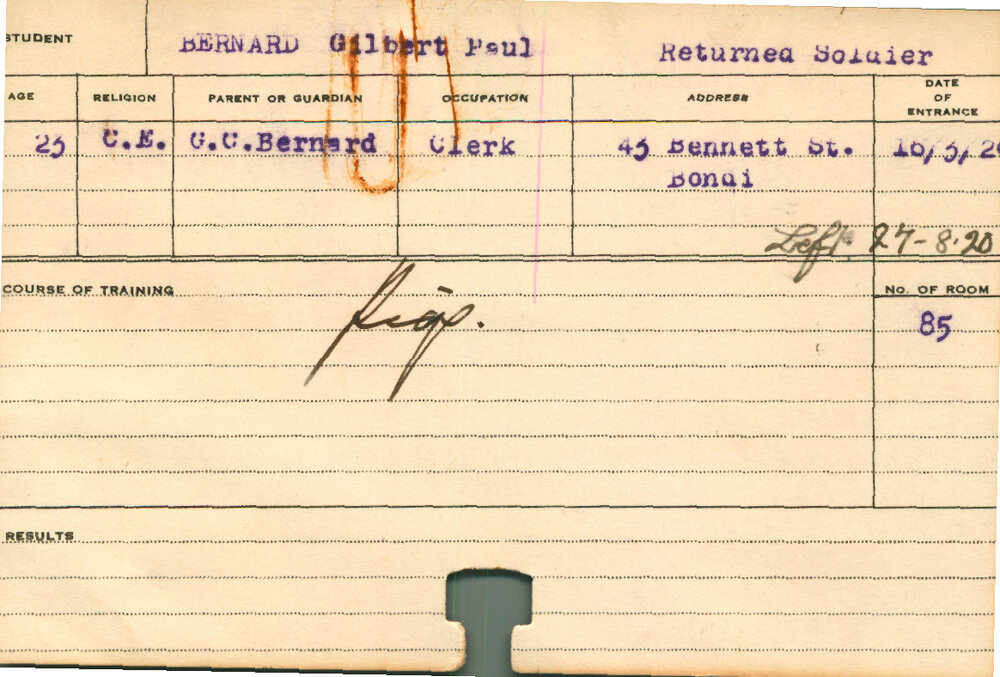 STUDENT BERNARD Gilbert Paul Returned Soldier
AGE RELIGION PARENT OR GUARDIAN OCCUPATION ADDRESS DATE OF ENTRANCE
23 C.E. G.C.Bernard Clerk 45 Bennett St. 16/3/20
Bondi
Left. 27-8-20
COURSE OF TRAINING No. OF ROOM
85
RESULTS